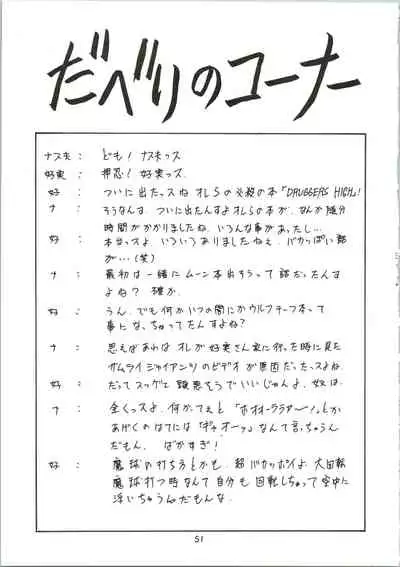 だべりのコーナー
ナス夫: ども!ナス夫っス
好実: 押忍!好実っズ.
好: ついに出たっスね オレらの必殺の本「DRUGGERS HIGH」!
ナ: そうなんス ついに出たんすよオレらの本が. なんか随分
時間がかかりましたね. いろんな事があったし…
好: 本当っスよ. いろいろありましたねぇ. バカっぽい話
が…(笑)
ナ: 最初は一緒にムーン本出そうって話だったんす
よね? 確か.
好: うん. でも何かいつの間にかウルフチーフ本って
事になっちゃってたんすよね?
ナ: 思えばあれは オレが好実さん家に行った時に見た
サムライジャイアンツのビデオが原因だったっスよね
好: だってスッゲェ頭悪そうでいいじゃんよ. 奴は.
ナ: 全くっスよ. 何かてぇと「ホオオーララァー!」とか
あげくのはてには「ギャオーッ」なんて言っちゃうん
だもん. ばかすぎ!
好: 魔球の打ち方とかも. 超バカッポイよ. 大回転
魔球打つ時なんて自分も回転しちゃって空中に
浮いちゃうんだもんな.
51